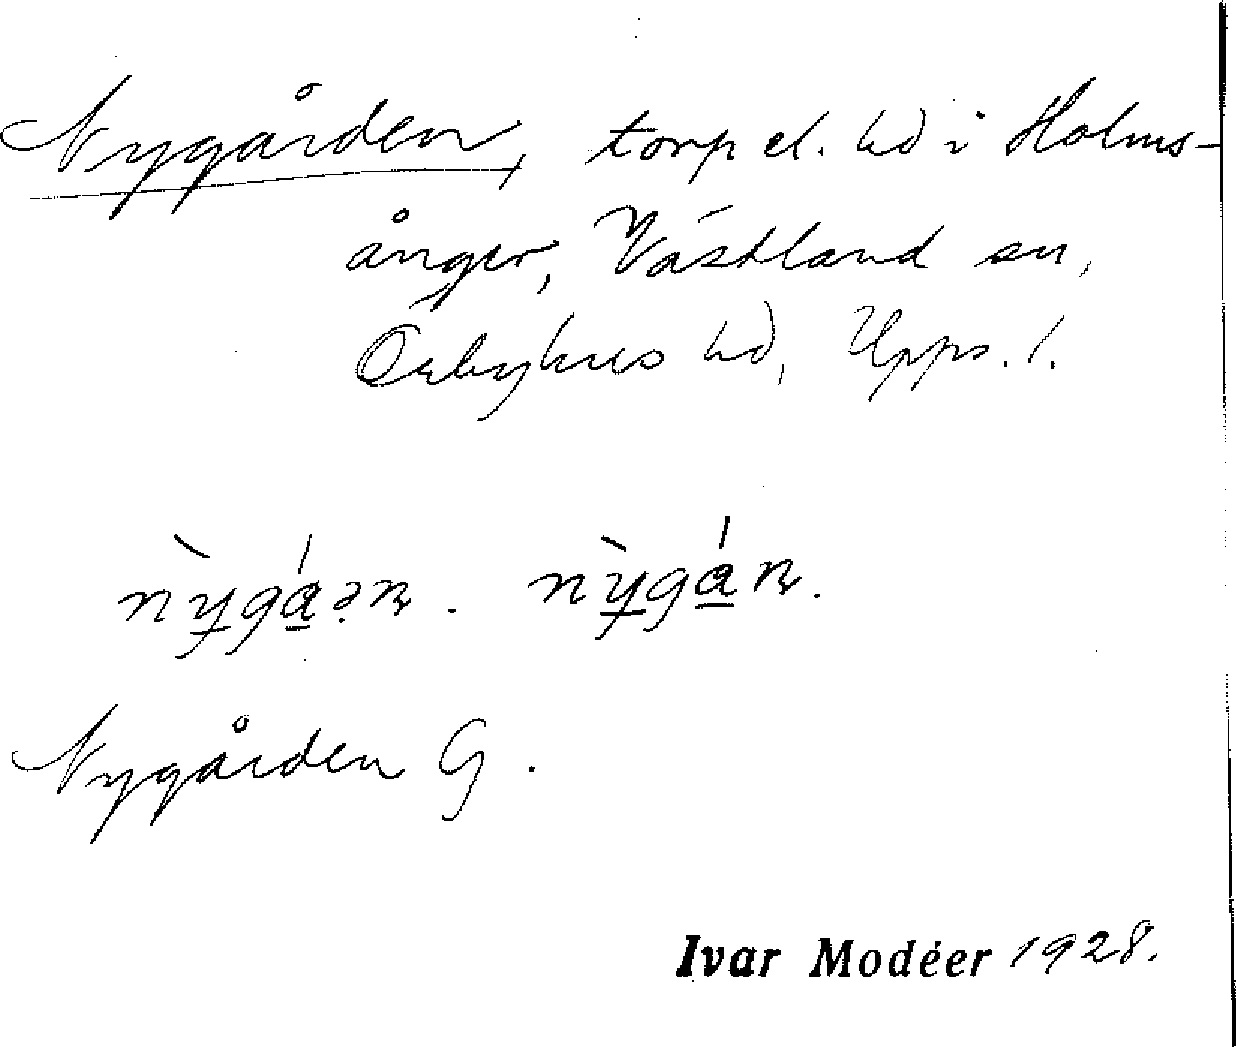 Nygården, torp el. hd i Holms-
ånger, Västland sn,
Örbyhus hd, Upps. l.
nỳgáən. nỳgán.
Nygården G.
Ivar Modéer 1928.